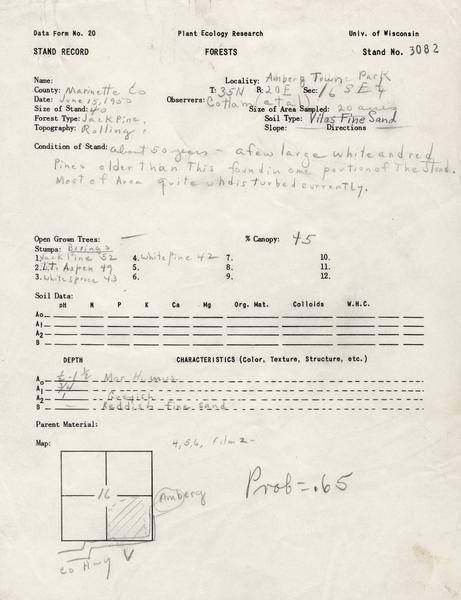 Data Form No. 20 Plant Ecology Research Univ. of Wisconsin
STAND RECORD FORESTS Stand No. 3082
Name: Locality: Amberg Town Park
County: Marinette Co T: 35N R: 20E Sec: 16 SE4
Date: June 15, 1950 Observers: Cottam (et al)
Size of Stand: 40 Size of Area Sampled: 20 acres
Forest Type: Jack Pine, Soil Type: Vilas Fine Sand
Topography: Rolling, Slope: Directions
Condition of Stand: about 50 years - a few large white and red
Pines older than this found in one portion of the stand.
Most of Area quite undisturbed currently.
Open Grown Trees: — % Canopy: 45
Stumps: Borings
1. Jack Pine 52 4. White Pine 42 7. 10.
2. L.T. Aspen 49 5. 8. 11.
3. White spruce 43 6. 9. 12.
Soil Data:
pH N P K Ca Mg Org. Mat. Colloids W.H.C.
Ao
A1
A2
B
DEPTH CHARACTERISTICS (Color, Texture, Structure, etc.)
Ao ½-1½ Mor Humus
A1 3/4
A2 1 Greyish
B — Reddish fine sand
Parent Material:
Map: 4,5,6, Film 2-
16 Amberg
Prob=.65
co Hwy V